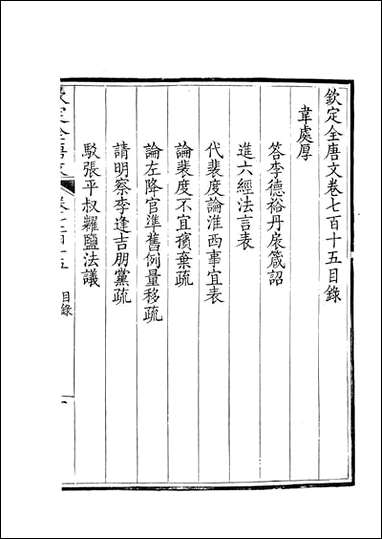 欽定全唐文卷七百十五目錄
韋處厚
答李德裕丹扆箴詔
進六經法言表
代裴度論淮西事宜表
論裴度不宜擯棄疏
論左降官準舊例量移疏
請明察李逢吉朋黨疏
駁張平叔糶鹽法議
目錄